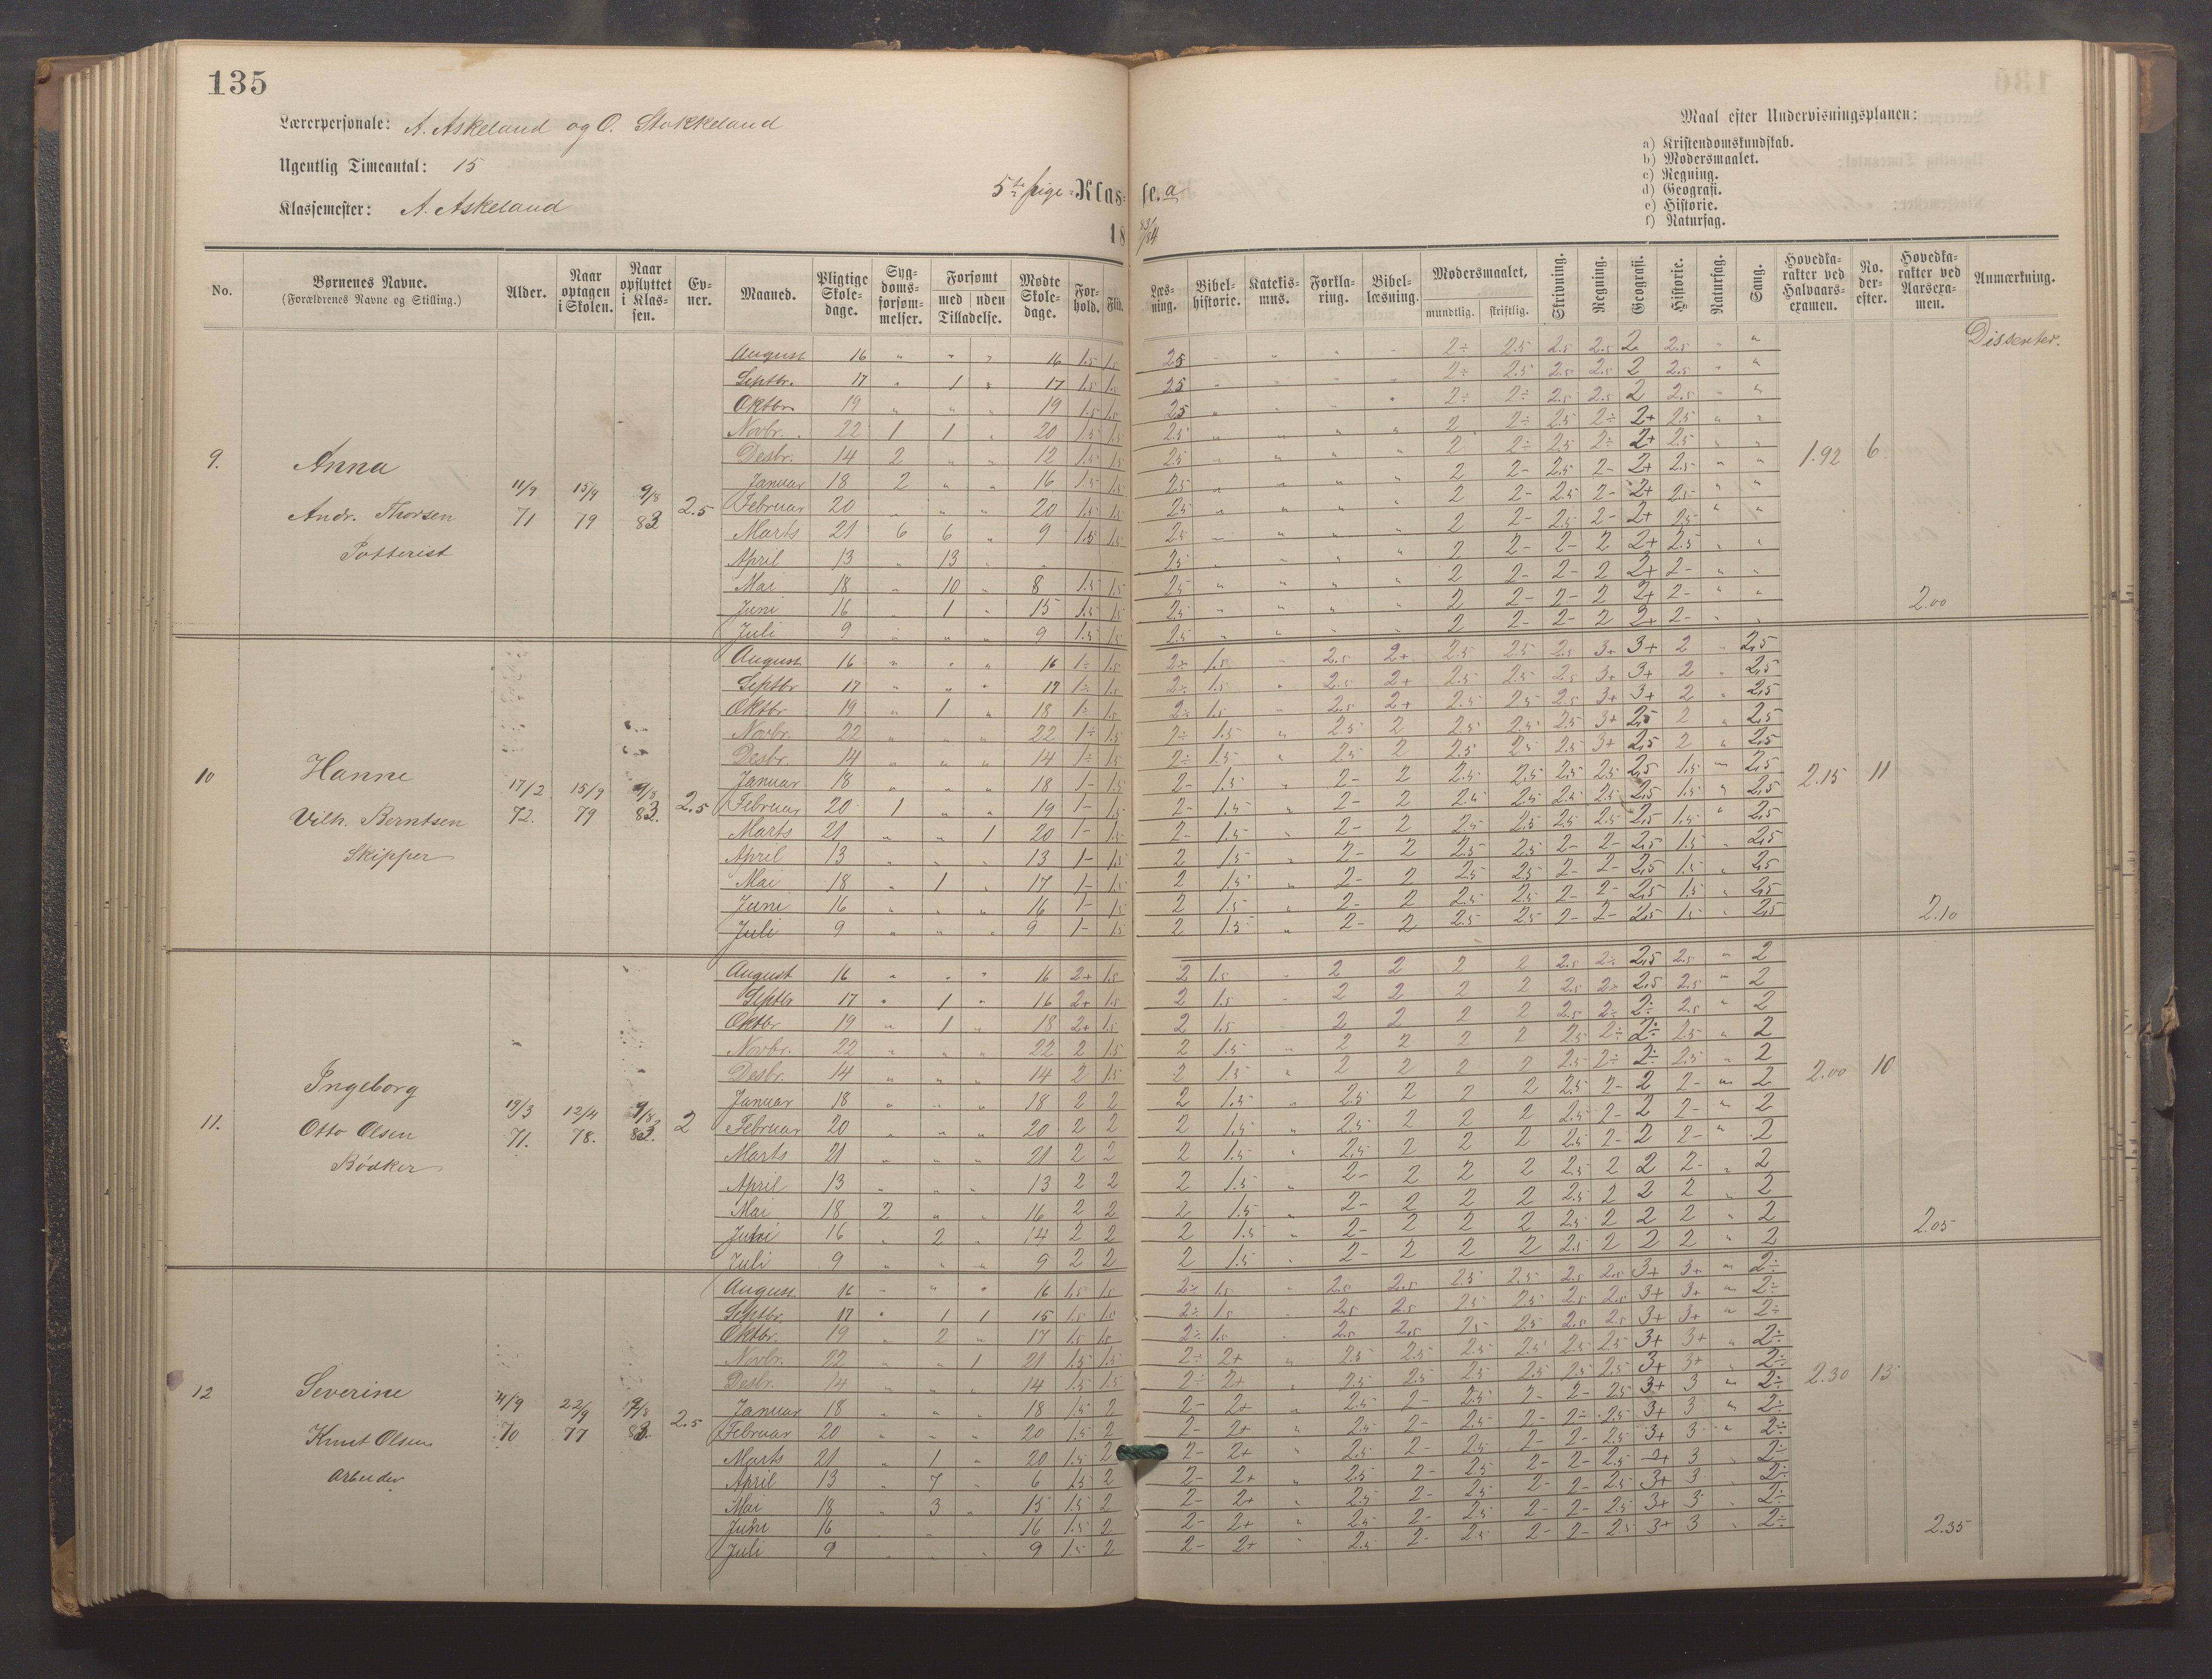 135
Lærerpersonale: A. Askeland og O. Stokkeland
Ugentlig Timeantal: 15
Klassemester: A. Askeland
5te pige-Klasse. a
18 83/84
Maal efter Undervisningsplanen:
a) Kristendomskundskab.
b) Modersmaalet.
c) Regning.
d) Geografi.
e) Historie.
f) Naturfag.
No. Børnenes Navne. (Forældrenes Navne og Stilling.) Alder. Naar optagen i Skolen. Naar opflyttet i Klassen. Evner. Maaned. Pligtige Skoledage. Sygdomsforsømmelser. Forsømt med uden Tilladelse. Mødte Skoledage. Forhold. Flid. Læsning. Bibelhistorie. Katekismus. Forklaring. Bibellæsning. Modersmaalet, mundtlig. skriftlig. Skrivning. Regning. Geografi. Historie. Naturfag. Sang. Hovedkarakter ved Halvaarsexamen. No. derefter. Hovedkarakter ved Aarsexamen. Anmærkning.
9. Anna
Andr. Thorsen
Potterist
11/9 71 15/9 79 9/8 83 2.5
August 16 " " " 16 1.5 1.5 2.5 2÷ 2.5 2.5 2.5 2 2.5 " " Dissenter.
Septbr. 17 " 1 " 17 1.5 1.5 2.5 2÷ 2.5 2.5 2.5 2 2.5 " "
Oktbr 19 " " " 19 1.5 1.5 2.5 2÷ 2÷ 2.5 2.5 2 2.5 " "
Novbr. 22 1 1 " 20 1.5 1.5 2.5 2 2÷ 2.5 2÷ 2+ 2.5 " "
Desbr. 14 2 " " 12 1.5 1.5 2.5 2 2÷ 2.5 2÷ 2+ 2.5 " " 1.92 6
Januar 18 2 " " 16 1.5 1.5 2.5 2 2- 2.5 2- 2+ 2.5 " "
Februar 20 " " " 20 1.5 1.5 2.5 2 2- 2.5 2- 2+ 2.5 " "
Marts 21 6 6 " 9 1.5 1.5 2.5 2 2- 2.5 2- 2+ 2.5 " "
April 13 " 13 " " 2.5 2 2- 2- 2 2+ 2.5 " "
Mai 18 " 10 " 8 1.5 1.5 2.5 2 2- 2- 2 2+ 2- " "
Juni 16 " 1 " 15 1.5 1.5 2.5 2 2- 2- 2 2+ 2- " " 2.00
Juli 9 " " " 9 1.5 1.5 2.5 2 2- 2- 2 2+ 2- " "
10 Hanne
Vilh. Berntsen
Skipper
17/2 72. 15/9 79 9/8 83. 2.5
August 16 " " " 16 1÷ 1.5 2÷ 1.5 " 2.5 2+ 2.5 2.5 2.5 3+ 3+ 2 " 2,5
Septbr 17 " " " 17 1÷ 1.5 2÷ 1.5 " 2.5 2+ 2.5 2.5 2.5 3+ 3+ 2 " 2,5
Oktbr. 19 " 1 " 18 1÷ 1.5 2÷ 1.5 " 2.5 2+ 2.5 2.5 2.5 3+ 3+ 2 " 2,5
Novbr. 22 " " " 22 1÷ 1.5 2÷ 1.5 " 2.5 2 2.5 2.5 2.5 3+ 2,5 2 " 2,5
Desbr. 14 " " " 14 1÷ 1.5 2÷ 1.5 " 2.5 2 2.5 2.5 2.5 3+ 2,5 2 " 2,5
Januar 18 " " " 18 1- 1.5 2- 1.5 " 2- 2 2.5 2.5 2.5 2.5 2,5 1.5 " 2,5 2.15 11
Februar 20 1 " " 19 1- 1.5 2- 1.5 " 2- 2 2.5 2.5 2.5 2.5 2,5 1.5 " 2,5
Marts 21 " " 1 20 1- 1.5 2- 1.5 " 2- 2 2.5 2.5 2.5 2.5 2,5 1.5 " 2,5
April 13 " " " 13 1- 1.5 2 1.5 " 2- 2 2.5 2.5 2- 2- 2,5 1.5 " 2,5
Mai 18 " 1 " 17 1- 1.5 2 1.5 " 2- 2 2.5 2.5 2- 2- 2,5 1.5 " 2,5
Juni 16 " " " 16 1- 1.5 2 1.5 " 2- 2 2.5 2.5 2- 2- 2,5 1.5 " 2,5
Juli 9 " " " 9 1- 1.5 2 1.5 " 2- 2 2.5 2.5 2- 2- 2,5 1.5 " 2,5 2.10
11. Ingeborg
Otto Olsen
Bødker
19/3 71. 12/4 78. 9/8 83. 2
August 16 " " " 16 2+ 1.5 2 1.5 " 2 2 2 2 2.5 2÷ 2,5 2.5 " 2
Septbr 17 " 1 " 16 2+ 1.5 2 1.5 " 2 2 2 2 2.5 2÷ 2,5 2.5 " 2
Oktbr 19 " 1 " 18 2+ 1.5 2 1.5 " 2 2 2 2 2.5 2÷ 2÷ 2.5 " 2
Novbr. 22 " " " 22 2 1.5 2 1.5 " 2 2 2 2 2.5 2÷ 2÷ 2.5 " 2
Desbr. 14 " " " 14 2 1.5 2 1.5 " 2 2 2 2 2.5 2÷ 2÷ 2.5 " 2 2.00 10
Januar 18 " " " 18 2 2 2 1.5 " 2.5 2 2 2 2.5 2- 2 2- " 2
Februar 20 " " " 20 2 2 2 1.5 " 2.5 2 2 2 2.5 2- 2 2- " 2
Marts 21 " " " 21 2 2 2 1.5 " 2.5 2 2 2 2.5 2- 2 2- " 2
April 13 " " " 13 2 2 2 1.5 " 2- 2 2 2 2.5 2 2 2- " 2
Mai 18 2 " " 16 2 2 2 1.5 " 2- 2 2 2 2.5 2 2 2 " 2
Juni 16 " 2 " 14 2 2 2 1.5 " 2- 2 2 2 2.5 2 2 2 " 2 2.05
Juli 9 " " " 9 2 2 2 1.5 " 2- 2 2 2 2.5 2 2 2 " 2
12 Severine
Knut Olsen
Arbeider
4/9 70 22/9 77 9/8 83. 2.5
August. 16 " " " 16 1.5 1.5 2÷ 1.5 " 2.5 2.5 2.5 2.5 2.5 2.5 3+ 3+ " 2÷
Septbr. 17 " 1 1 15 1.5 1.5 2÷ 1.5 " 2.5 2.5 2.5 2.5 2.5 2.5 3+ 3+ " 2÷
Oktbr. 19 " 2 " 17 1.5 1.5 2÷ 1.5 " 2.5 2.5 2.5 2.5 2.5 2.5 3+ 3+ " 2÷
Novbr. 22 " " 1 21 1.5 1.5 2÷ 2+ " 2.5 2.5 2.5 2.5 2.5 2.5 3+ 3+ " 2÷
Desbr. 14 " " " 14 1.5 1.5 2÷ 2+ " 2.5 2.5 2.5 2.5 2.5 2.5 3+ 3+ " 2÷ 2.30 13
Januar 18 " " " 18 1.5 2 2- 2+ " 2.5 2- 2.5 2- 2- 2.5 3+ 3 " 2÷
Februar 20 " " " 20 1.5 2 2- 2+ " 2.5 2- 2.5 2- 2- 2.5 3+ 3 " 2÷
Marts 21 " 1 " 20 1.5 2 2- 2+ " 2.5 2- 2.5 2- 2- 2.5 3+ 3 " 2÷
April 13 " 7 " 6 1.5 2 2- 2+ " 2.5 2- 2.5 2- 2- 2.5 3+ 3 " 2÷
Mai 18 " 3 " 15 1.5 2 2- 2+ " 2.5 2- 2.5 2- 2- 2.5 3+ 3 " 2÷
Juni 16 " " " 16 1.5 2 2- 2+ " 2.5 2- 2.5 2- 2- 2.5 3+ 3 " 2÷
Juli 9 " " " 9 1.5 2 2- 2+ " 2.5 2- 2.5 2- 2- 2.5 3+ 3 " 2÷ 2.35